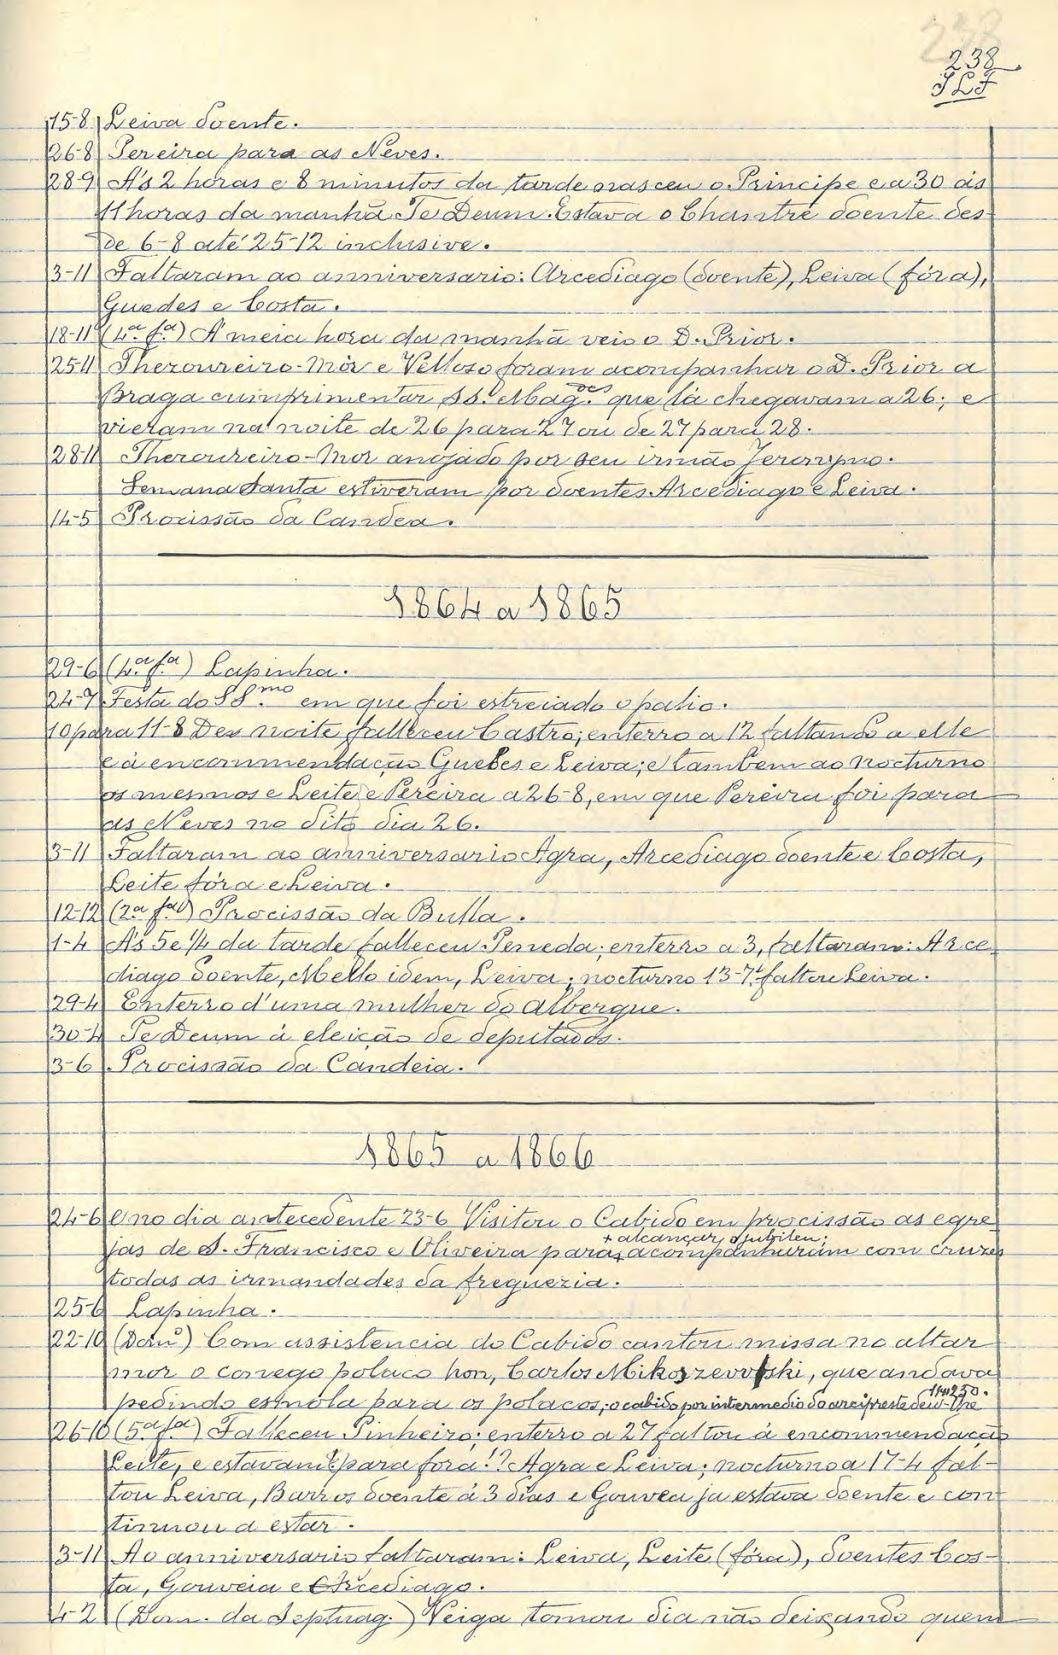 238
238
JLF
15-8 Leiva doente.
26-8 Pereira para as Neves.
28-9 A's 2 horas e 8 minutos da tarde nasceu o Principe e a 30 ás
11 horas da manhã Te Deum. Estava o Chantre doente des-
de 6-8 até 25-12 inclusive.
3-11 Faltaram ao anniversario: Arcediago (doente), Leiva (fóra),
Guedes e Costa.
18-11 (4.ª f.ª) A' meia hora da manhã veio o D. Prior.
25-11 Thesoureiro-Mór e Velloso foram acompanhar o D. Prior a
Braga cumprimentar SS. Mag.des que lá chegavam a 26; e
vieram na noite de 26 para 27 ou de 27 para 28.
28-11 Thesoureiro-Mor anojado por seu irmão Jeronymo.
Semana Santa estiveram por doentes Arcediago e Leiva.
14-5 Procissão da Candea.
1864 a 1865
29-6 (4.ª f.ª) Lapinha.
24-7 Festa do SS.mo em que foi estreiado o palio.
10 para 11-8 De noite falleceu Castro; enterro a 12 faltando a elle
e á encommendação Guedes e Leiva; e tambem ao nocturno
os mesmos e Leite e Pereira a 26-8, em que Pereira foi para
as Neves no dito dia 26.
3-11 Faltaram ao anniversario Agra, Arcediago doente e Costa,
Leite fóra e Leiva.
12-12 (2.ª f.ª) Procissão da Bulla.
1-4 A's 5 e 1/4 da tarde falleceu Peneda; enterro a 3, faltaram: Arce-
diago doente, Mello idem, Leiva; nocturno 13-7 faltou Leiva.
29-4 Enterro d'uma mulher do albergue.
30-4 Te Deum á eleição de deputados.
3-6 Procissão da Candeia.
1865 a 1866
24-6 e no dia antecedente 23-6 Visitou o Cabido em procissão as egre-
+ alcançar o jubileu;
jas de S. Francisco e Oliveira para + acompanharam com cruzes
todas as irmandades da freguezia.
25-6 Lapinha.
22-10 (Dom.º) Com assistencia do Cabido cantou missa no altar
mor o conego polaco hon, Carlos Mikoszewski, que andava
pedindo esmola para os polacos; o cabido por intermedio do arcipreste deu-lhe 11$250.
26-10 (5.ª f.ª) Falleceu Pinheiro; enterro a 27 faltou á encommendação
Leite, e estavam (para fóra!?) Agra e Leiva; nocturno a 17-4 fal-
tou Leiva, Barros doente á 3 dias e Gouvea ja estava doente e con-
tinuou a estar.
3-11 Ao anniversario faltaram: Leiva, Leite (fóra), doentes Cos-
ta, Gouveia e Arcediago.
4-2 (Dom. da Septuag.) Veiga tomou dia não deixando quem